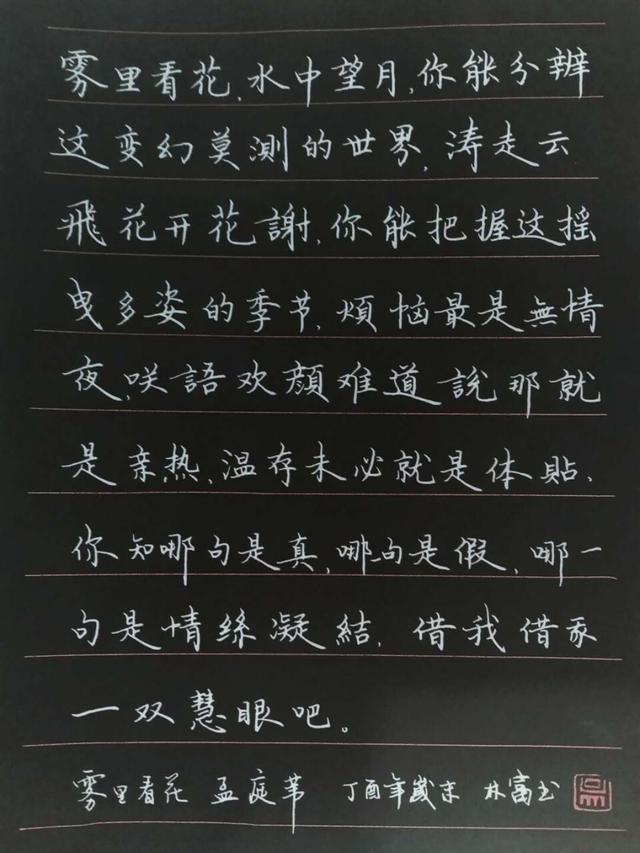 雾里看花,水中望月,你能分辨
这变幻莫測的世界,涛走云
飛花开花謝,你能把握这摇
曳多姿的季节,煩恼最是無情
夜,咲語欢顔难道説那就
是亲热,温存未必就是体貼,
你知哪句是真,哪句是假,哪一
句是情絲凝結,借我借我
一双慧眼吧。
雾里看花 孟庭苇 丁酉年歲末 林富书